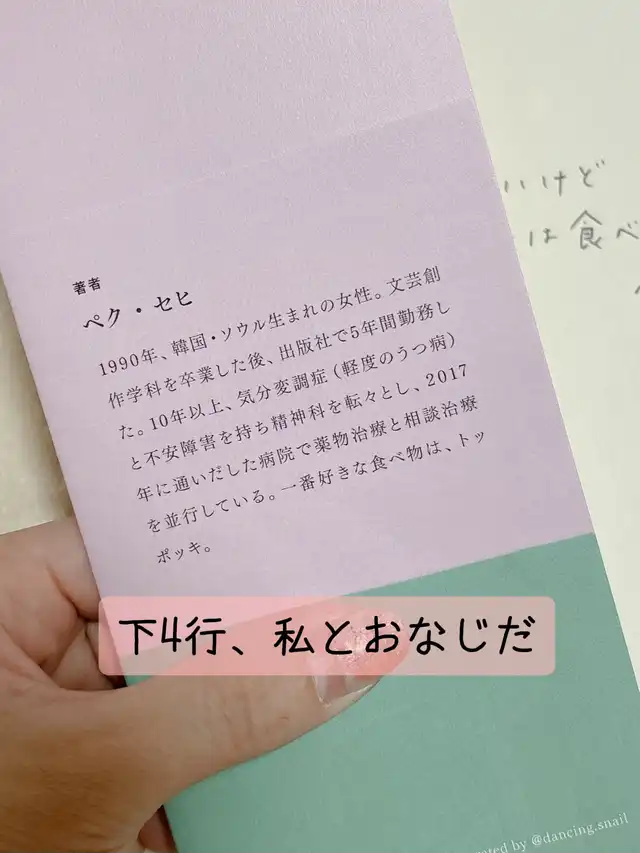 いけど
は食べ
著者
ペク・セヒ
1990年、韓国・ソウル生まれの女性。文芸創
作学科を卒業した後、出版社で5年間勤務し
た。10年以上、気分変調症（軽度のうつ病）
と不安障害を持ち精神科を転々とし、2017
年に通いだした病院で薬物治療と相談治療
を並行している。一番好きな食べ物は、トッ
ポッキ。
下4行、私とおなじだ
by @dancing.snail